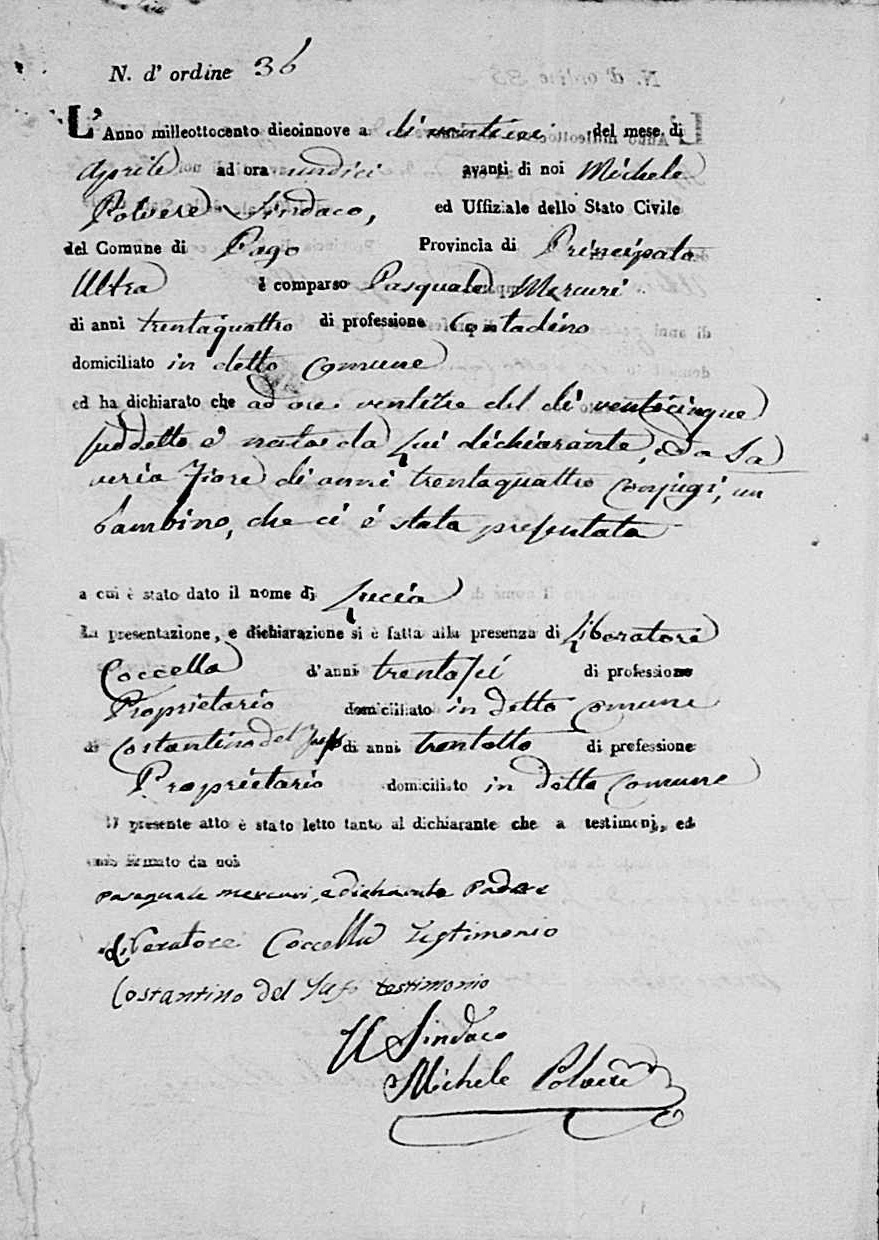 N. d' ordine 36
L'Anno milleottocento diecinnove a di ventisei del mese di
Aprile ad ora undici avanti di noi Michele
Polvere Sindaco, ed Uffiziale dello Stato Civile
del Comune di Pago Provincia di Principato
Ultra è comparso Pasquale Mercuri
di anni trentaquattro di professione Contadino
domiciliato in detto Comune
ed ha dichiarato che ad ore ventitre del di venticinque
suddetto è nato da Lui dichiarante, e da Sa
veria Fiore di anni trentaquattro conjugi, un
bambino, che ci è stata presentata
a cui è stato dato il nome di Lucia
La presentazione, e dichiarazione si è fatta alla presenza di Liberatore
Coccella d'anni trentasei di professione
Proprietario domiciliato in detto Comune
di Costantino del di anni trentotto di professione
Proprietario domiciliato in detto Comune
Il presente atto è stato letto tanto al dichiarante che a testimonj, ed
firmato da noi
Pasquale Mercuri, e dichiarante Padre
Liberatore Coccella Testimonio
Costantino del testimonio
Il Sindaco
Michele Polvere